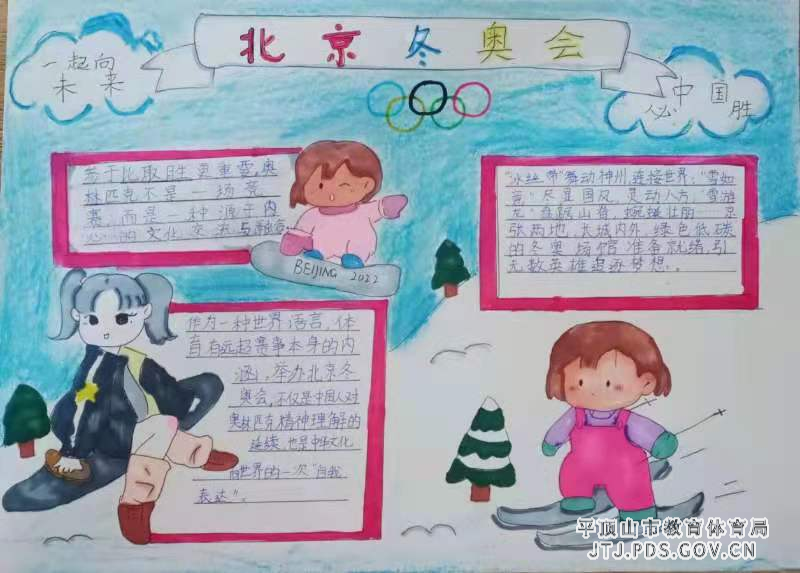 北京冬奥会
一起向
未来
中国
必 胜
苏于比取胜更重要,奥
林匹克不是一场竞
赛,而是一种源于内
心的文化交流与融合
BEIJING 2022
"冰丝带"舞动神州,连接世界;"雪如
意"尽显国风,灵动八方;"雪游
龙"盘踞山脊,蜿蜒壮丽……京
张两地,长城内外,绿色低碳
的冬奥场馆准备就绪,引
无数英雄追逐梦想。
作为一种世界语言,体
育有远超赛事本身的内
涵。举办北京冬
奥会,不仅是中国人对
奥林匹克精神理解的
延续,也是中华文化
向世界的一次"自我
表达"。
平顶山市教育体育局
JTJ.PDS.GOV.CN